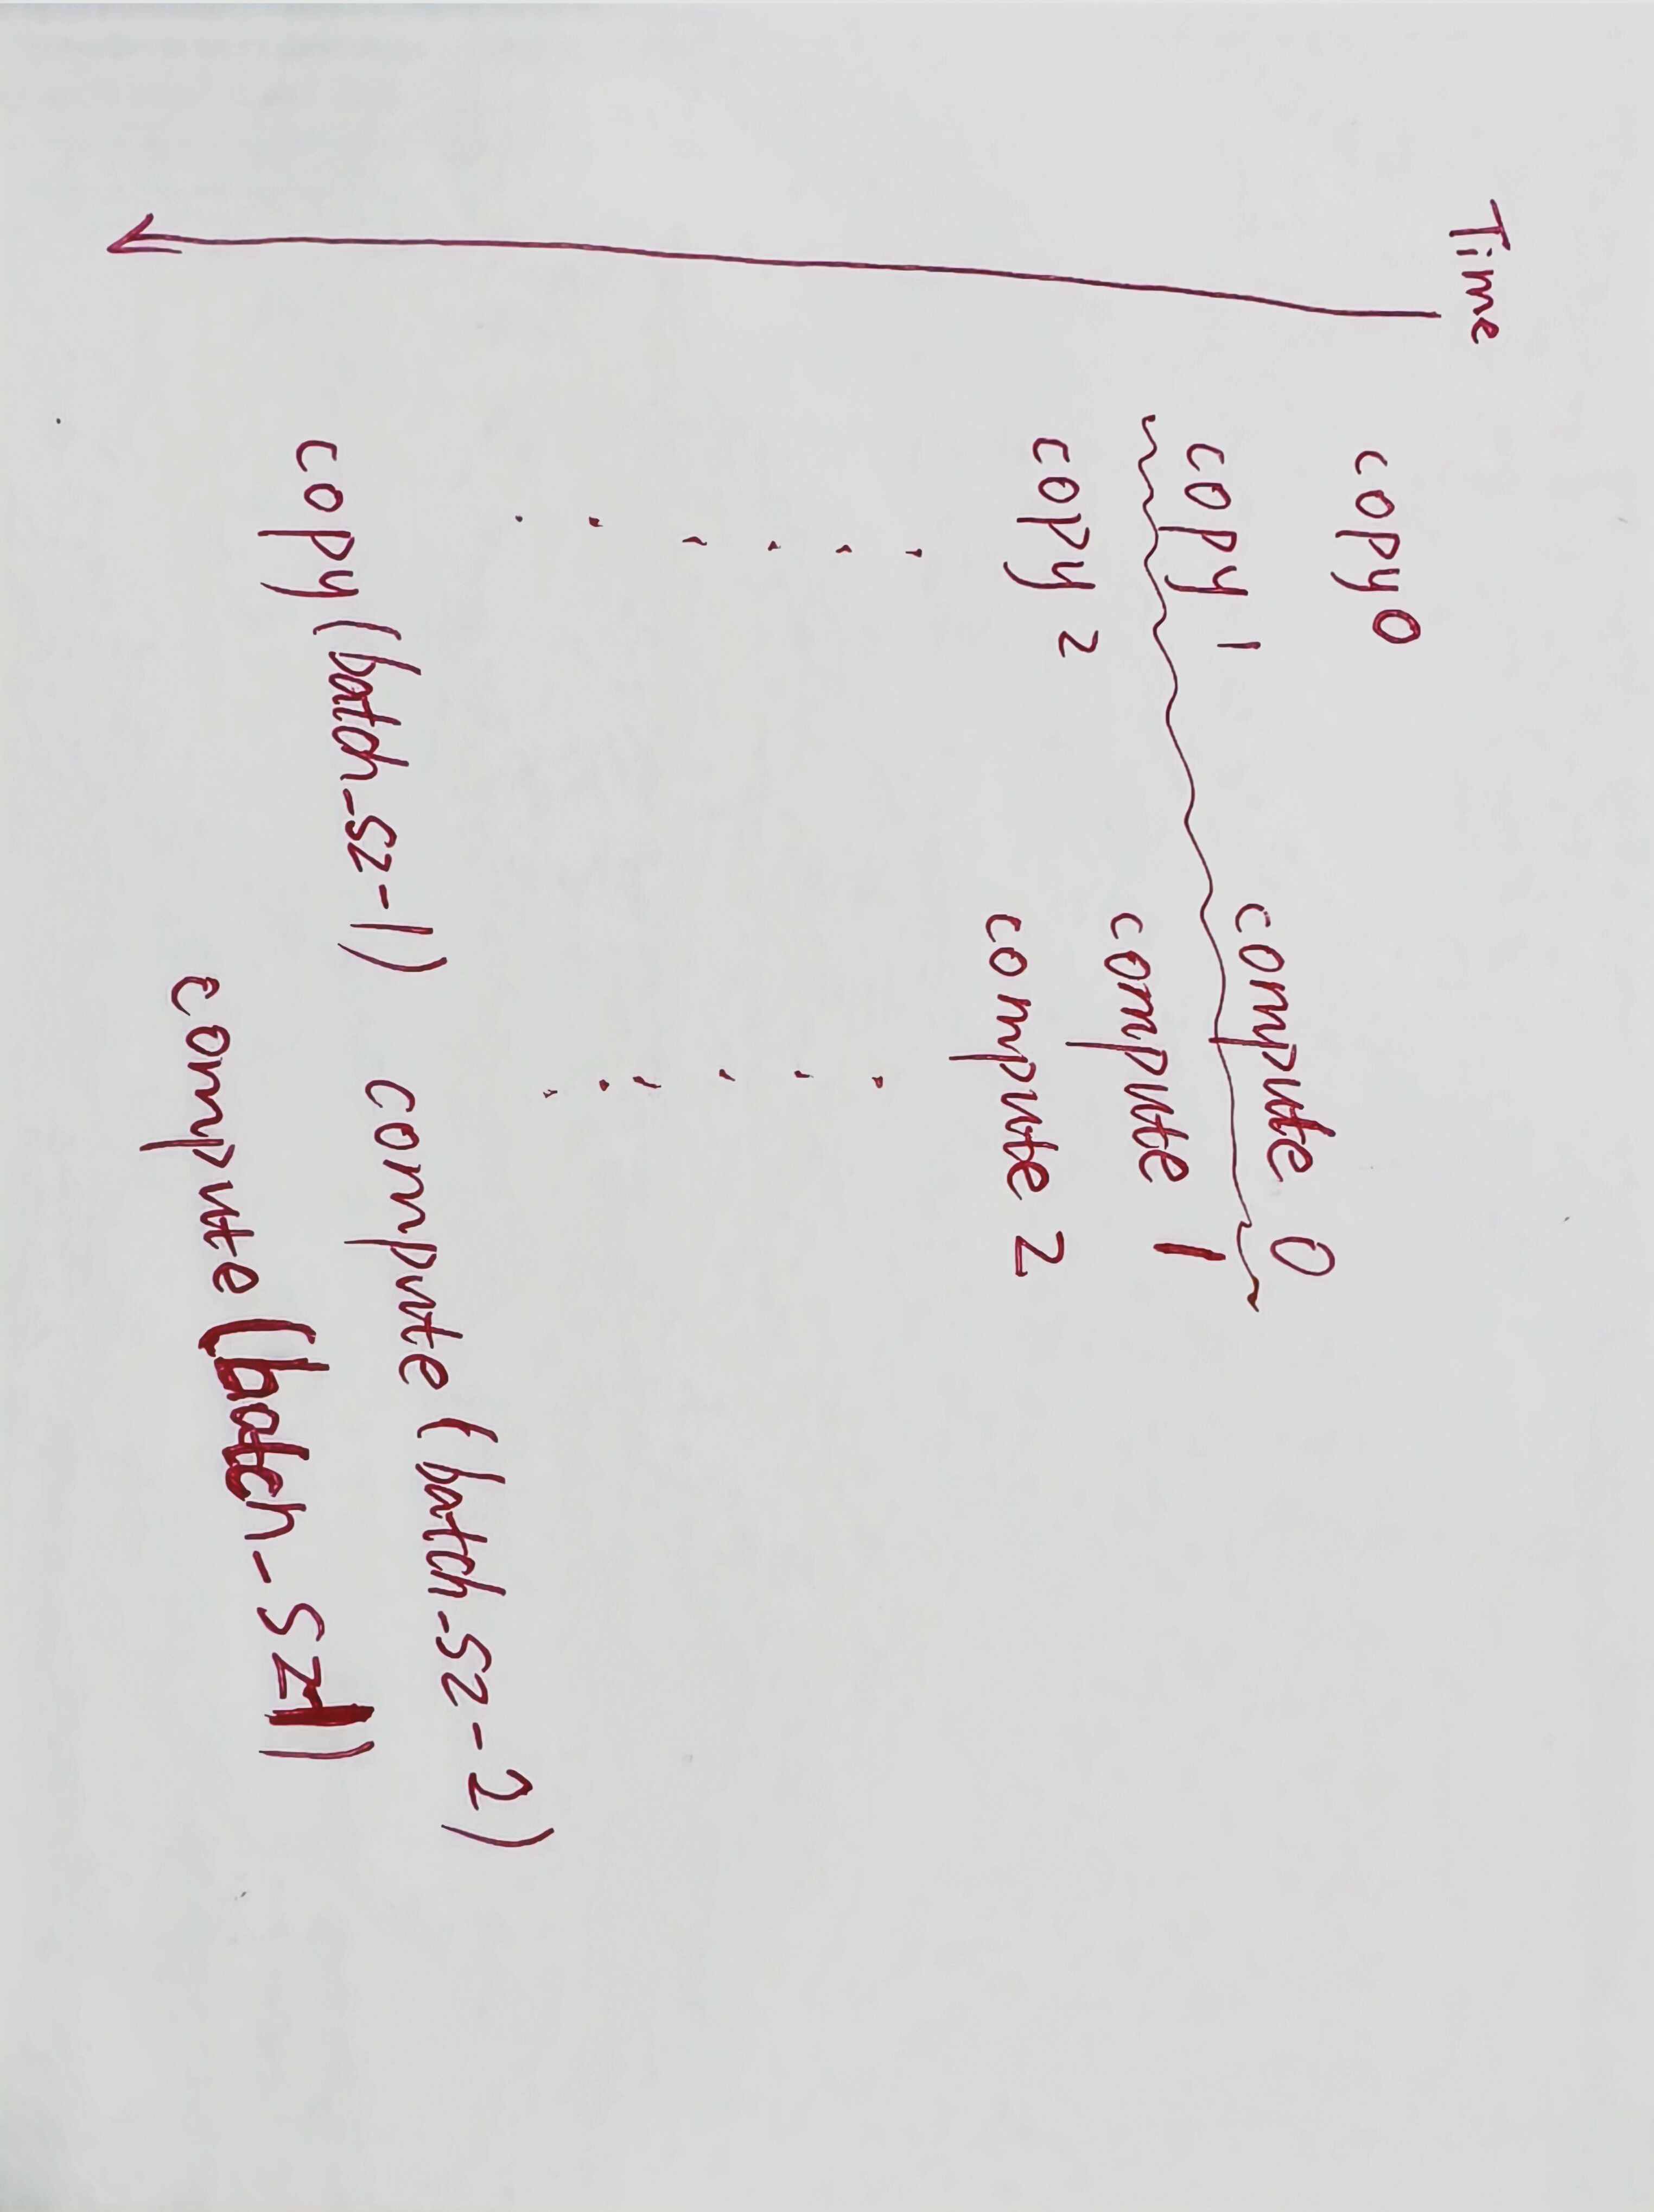 Time
copy 0
copy 1 compute 0
copy 2 compute 1
compute 2
copy (batch_sz-1) compute (batch_sz-2)
compute (batch_sz-1)